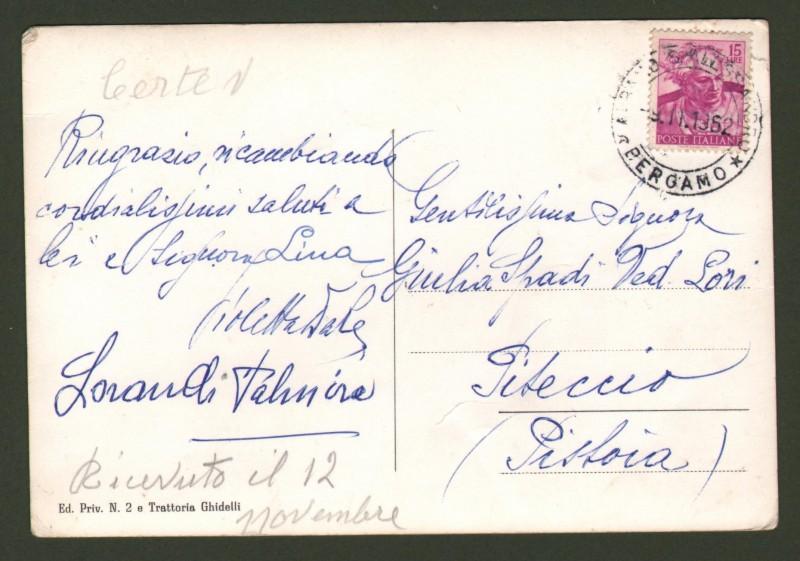 Ringrazio, ricambiando
cordialissimi saluti a
lei e Signora Lina
Violetta
Lorandi Palmira
Ricevuto il 12
novembre
Ed. Priv. N. 2 e Trattoria Ghidelli
15
LIRE
POSTE ITALIANE
11.1962
BERGAMO
Gentilissima Signora
Giulia Spadi Ved. Lori
Piteccio
(Pistoia)